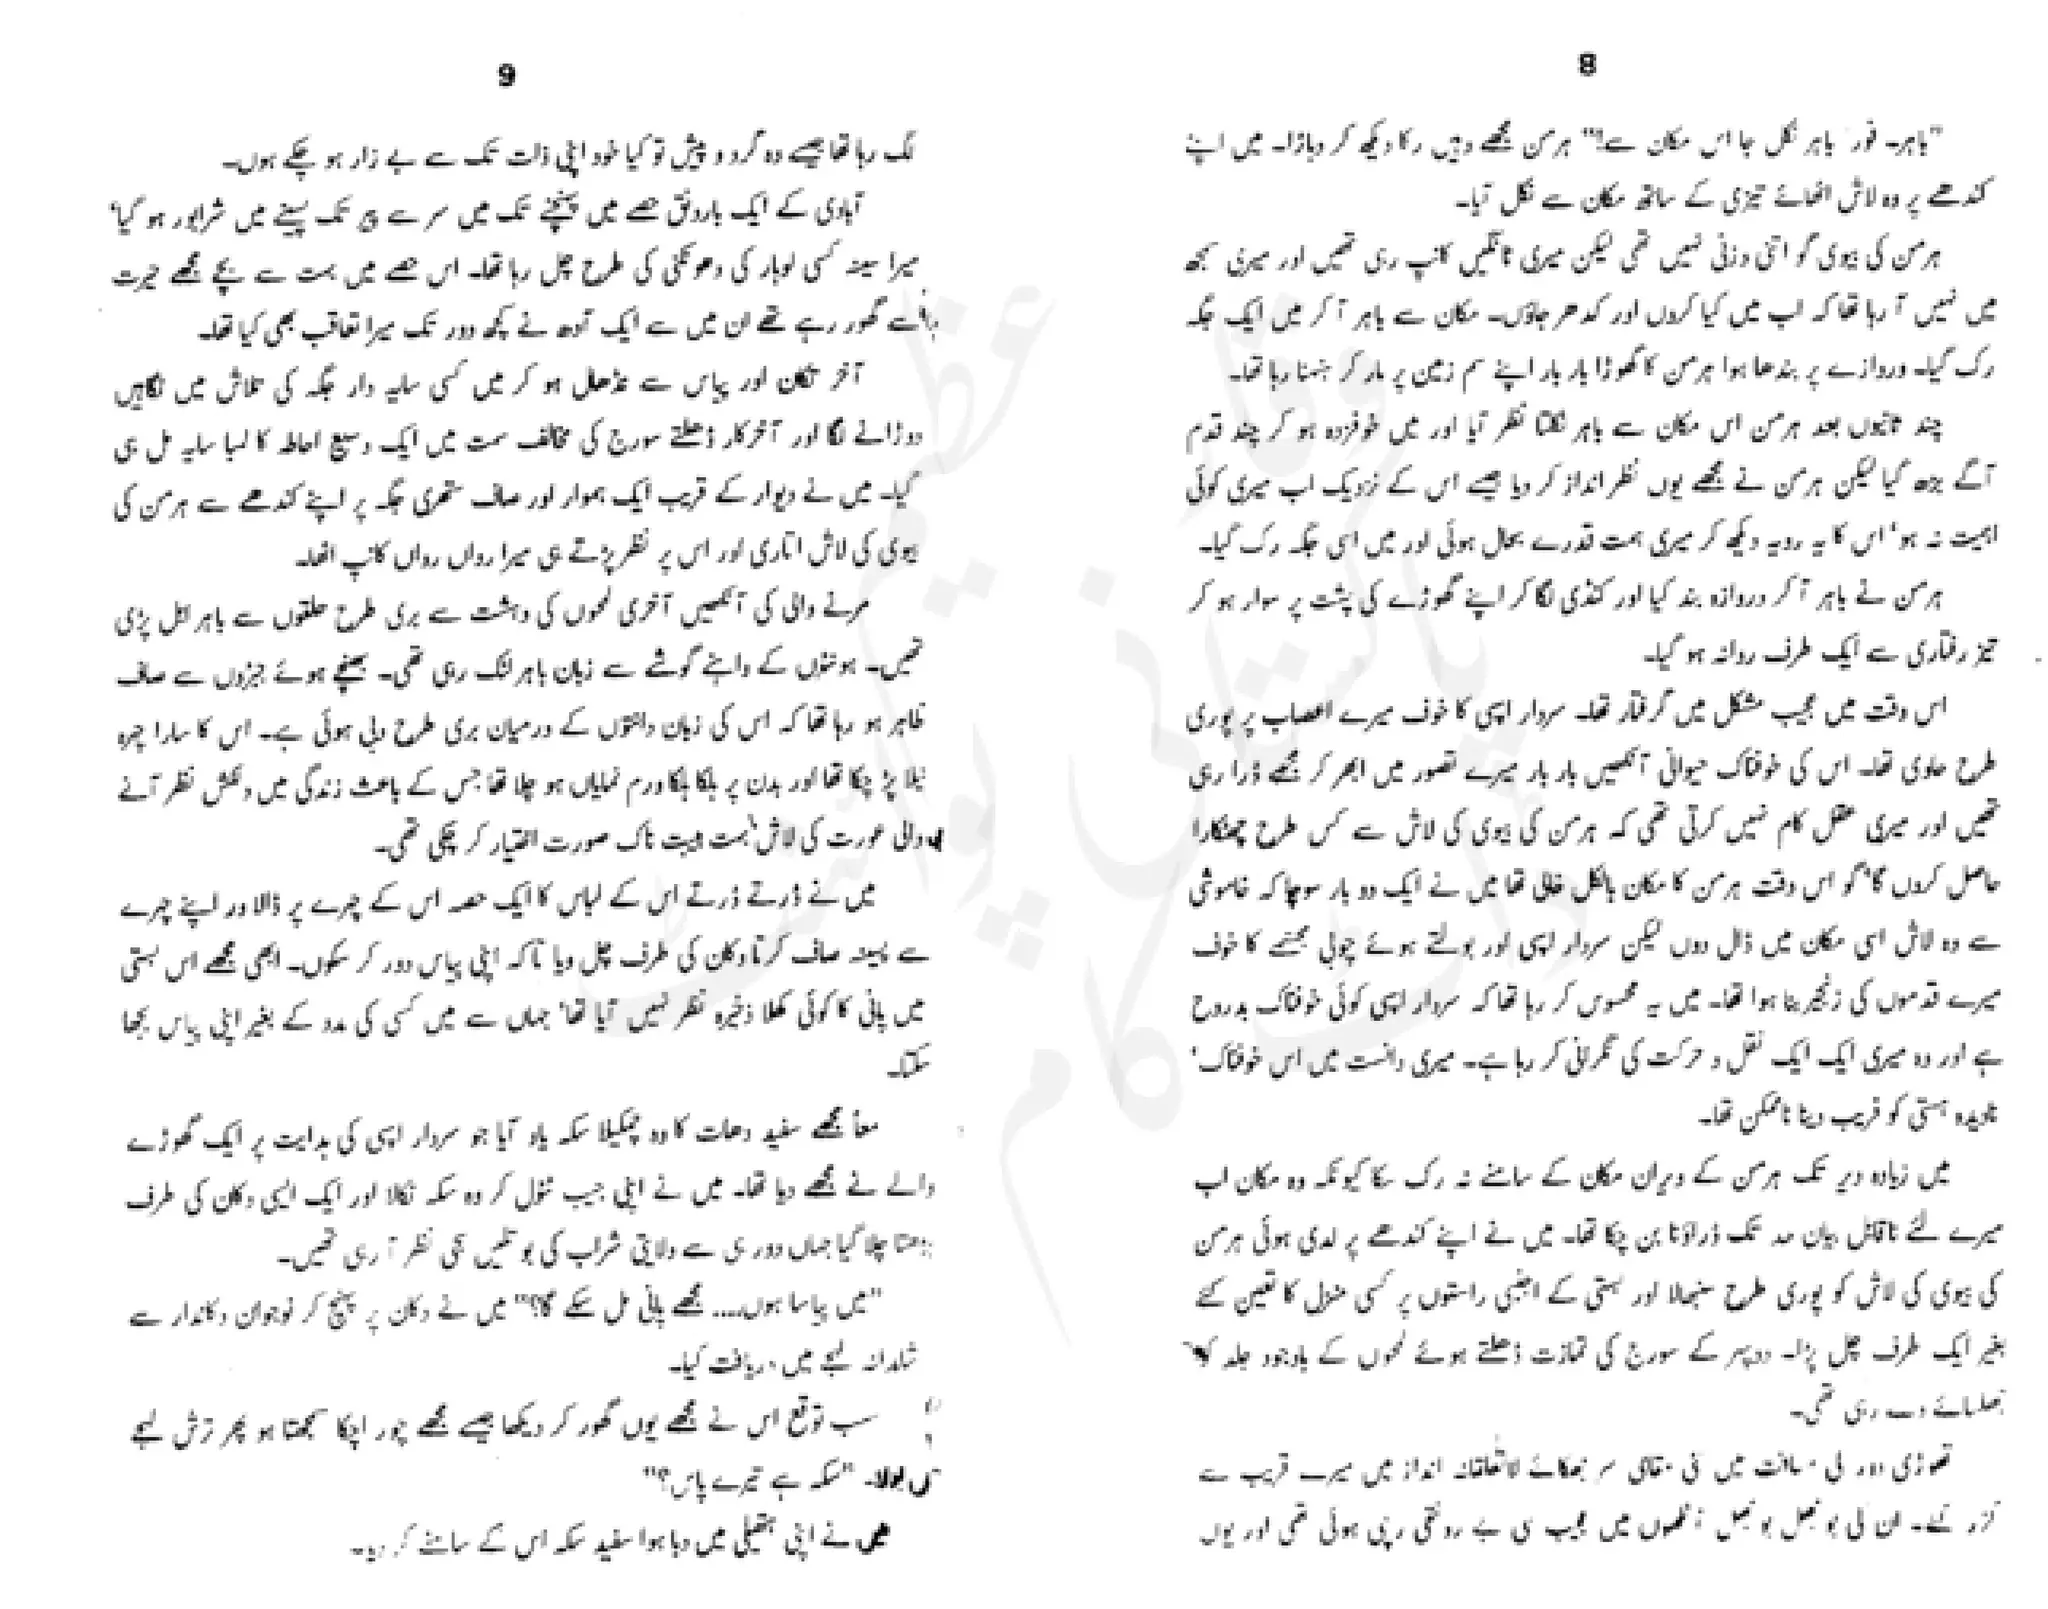 8
"باہر۔ فوراً باہر نکل جا اس مکان سے!" ہرمن مجھے وہیں رکا دیکھ کر دہاڑا۔ میں اپنے
کندھے پر وہ لاش اٹھائے تیزی کے ساتھ مکان سے نکل آیا۔
ہرمن کی بیوی گو اتنی وزنی نہیں تھی لیکن میری ٹانگیں کانپ رہی تھیں اور میری سمجھ
میں نہیں آ رہا تھا کہ اب میں کیا کروں اور کدھر جاؤں۔ مکان سے باہر آ کر میں ایک جگہ
رک گیا۔ دروازے پر بندھا ہوا ہرمن کا گھوڑا بار بار اپنے سم زمین پر مار کر ہنہنا رہا تھا۔
چند ثانیوں بعد ہرمن اس مکان سے باہر نکلتا نظر آیا اور میں خوفزدہ ہو کر چند قدم
آگے بڑھ گیا لیکن ہرمن نے مجھے یوں نظر انداز کر دیا جیسے اس کے نزدیک اب میری کوئی
اہمیت نہ ہو' اس کا یہ رویہ دیکھ کر میری ہمت قدرے بحال ہوئی اور میں اسی جگہ رک گیا۔
ہرمن نے باہر آ کر دروازہ بند کیا اور کنڈی لگا کر اپنے گھوڑے کی پشت پر سوار ہو کر
تیز رفتاری سے ایک طرف روانہ ہو گیا۔
اس وقت میں عجیب مشکل میں گرفتار تھا۔ سردار ایسی کا خوف میرے اعصاب پر پوری
طرح حاوی تھا۔ اس کی خوفناک حیوانی آنکھیں بار بار میرے تصور میں ابھر کر مجھے ڈرا رہی
تھیں اور میری عقل کام نہیں کرتی تھی کہ ہرمن کی بیوی کی لاش سے کس طرح چھٹکارا
حاصل کروں گا' گو اس وقت ہرمن کا مکان بالکل خالی تھا میں نے ایک دو بار سوچا کہ خاموشی
سے وہ لاش اسی مکان میں ڈال دوں لیکن سردار ایسی اور بولتے ہوئے چوبی مجسمے کا خوف
میرے قدموں کی زنجیر بنا ہوا تھا۔ میں یہ محسوس کر رہا تھا کہ سردار ایسی کوئی خوفناک بدروح
ہے اور وہ میری ایک ایک نقل و حرکت کی نگرانی کر رہا ہے۔ میری دانست میں اس خوفناک'
نادیدہ ہستی کو فریب دینا ناممکن تھا۔
میں زیادہ دیر تک ہرمن کے ویران مکان کے سامنے نہ رک سکا کیونکہ وہ مکان اب
میرے لئے ناقابل بیان حد تک ڈراؤنا بن چکا تھا۔ میں نے اپنے کندھے پر لدی ہوئی ہرمن
کی بیوی کی لاش کو پوری طرح سنبھالا اور بستی کے اجنبی راستوں پر کسی منزل کا تعین کئے
بغیر ایک طرف چل پڑا۔ دوپہر کے سورج کی تمازت ڈھلتے ہوئے لمحوں کے باوجود جلد کو
جھلسائے دے رہی تھی۔
تھوڑی دور کی مسافت میں کئی مقامی سر جھکائے لاتعلقانہ انداز میں میرے قریب سے
گزر گئے۔ ان کی بوجھل بوجھل آنکھوں میں عجیب سی بے رونقی رچی ہوئی تھی اور یوں
9
لگ رہا تھا جیسے وہ گرد و پیش تو کیا خود اپنی ذات تک سے بے زار ہو چکے ہوں۔
آبادی کے ایک بارونق حصے میں پہنچتے تک میں سر سے پیر تک پسینے میں شرابور ہو گیا'
میرا سینہ کسی لوہار کی دھونکنی کی طرح چل رہا تھا۔ اس حصے میں بہت سے بچے مجھے حیرت
سے گھور رہے تھے ان میں سے ایک آدھ نے کچھ دور تک میرا تعاقب بھی کیا تھا۔
آخر تکان اور پیاس سے نڈھال ہو کر میں کسی سایہ دار جگہ کی تلاش میں نگاہیں
دوڑانے لگا اور آخرکار ڈھلتے سورج کی مخالف سمت میں ایک وسیع احاطہ کا لمبا سایہ مل ہی
گیا۔ میں نے دیوار کے قریب ایک ہموار اور صاف ستھری جگہ پر اپنے کندھے سے ہرمن کی
بیوی کی لاش اتاری اور اس پر نظر پڑتے ہی میرا رواں رواں کانپ اٹھا۔
مرنے والی کی آنکھیں آخری لمحوں کی دہشت سے بری طرح حلقوں سے باہر ابل پڑی
تھیں۔ ہونٹوں کے داہنے گوشے سے زبان باہر لٹک رہی تھی۔ بھنچے ہوئے جبڑوں سے صاف
ظاہر ہو رہا تھا کہ اس کی زبان دانتوں کے درمیان بری طرح دبی ہوئی ہے۔ اس کا سارا چہرہ
نیلا پڑ چکا تھا اور بدن پر ہلکا ہلکا ورم نمایاں ہو چلا تھا جس کے باعث زندگی میں دلکش نظر آنے
والی عورت کی لاش بہت ہیبت ناک صورت اختیار کر چکی تھی۔
میں نے ڈرتے ڈرتے اس کے لباس کا ایک حصہ اس کے چہرے پر ڈالا ور اپنے چہرے
سے پسینہ صاف کرتا دکان کی طرف چل دیا تاکہ اپنی پیاس دور کر سکوں۔ ابھی مجھے اس بستی
میں پانی کا کوئی کھلا ذخیرہ نظر نہیں آیا تھا' جہاں سے میں کسی کی مدد کے بغیر اپنی پیاس بجھا
سکتا۔
معاً مجھے سفید دھات کا وہ چمکیلا سکہ یاد آیا جو سردار ایسی کی ہدایت پر ایک گھوڑے
والے نے مجھے دیا تھا۔ میں نے اپنی جیب ٹٹول کر وہ سکہ نکالا اور ایک ایسی دکان کی طرف
بڑھتا چلا گیا جہاں دور ہی سے ولایتی شراب کی بوتلیں سجی نظر آ رہی تھیں۔
"میں پیاسا ہوں.... مجھے پانی مل سکے گا؟" میں نے دکان پر پہنچ کر نوجوان دکاندار سے
لہجے میں دریافت کیا۔
توقع اس نے مجھے یوں گھور کر دیکھا جیسے مجھے چور اچکا سمجھتا ہو پھر ترش لہجے
بولا۔ "سکہ ہے تیرے پاس؟"
میں نے اپنی ہتھیلی میں دبا ہوا سفید سکہ اس کے سامنے کر دیا۔